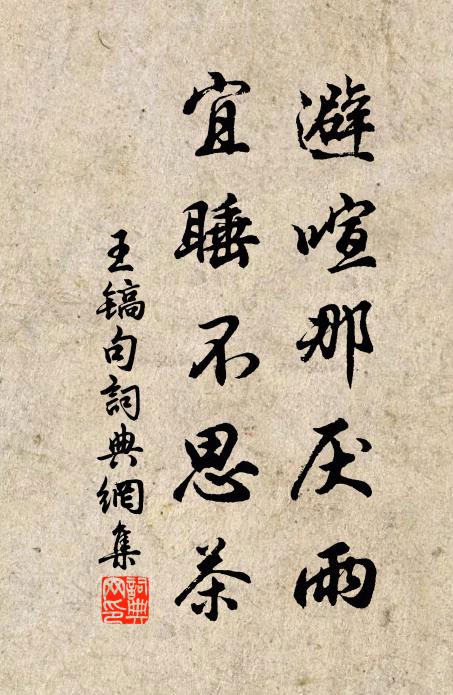 避喧那厌雨
宜睡不思茶
王镐句詞典網集
詞典網印